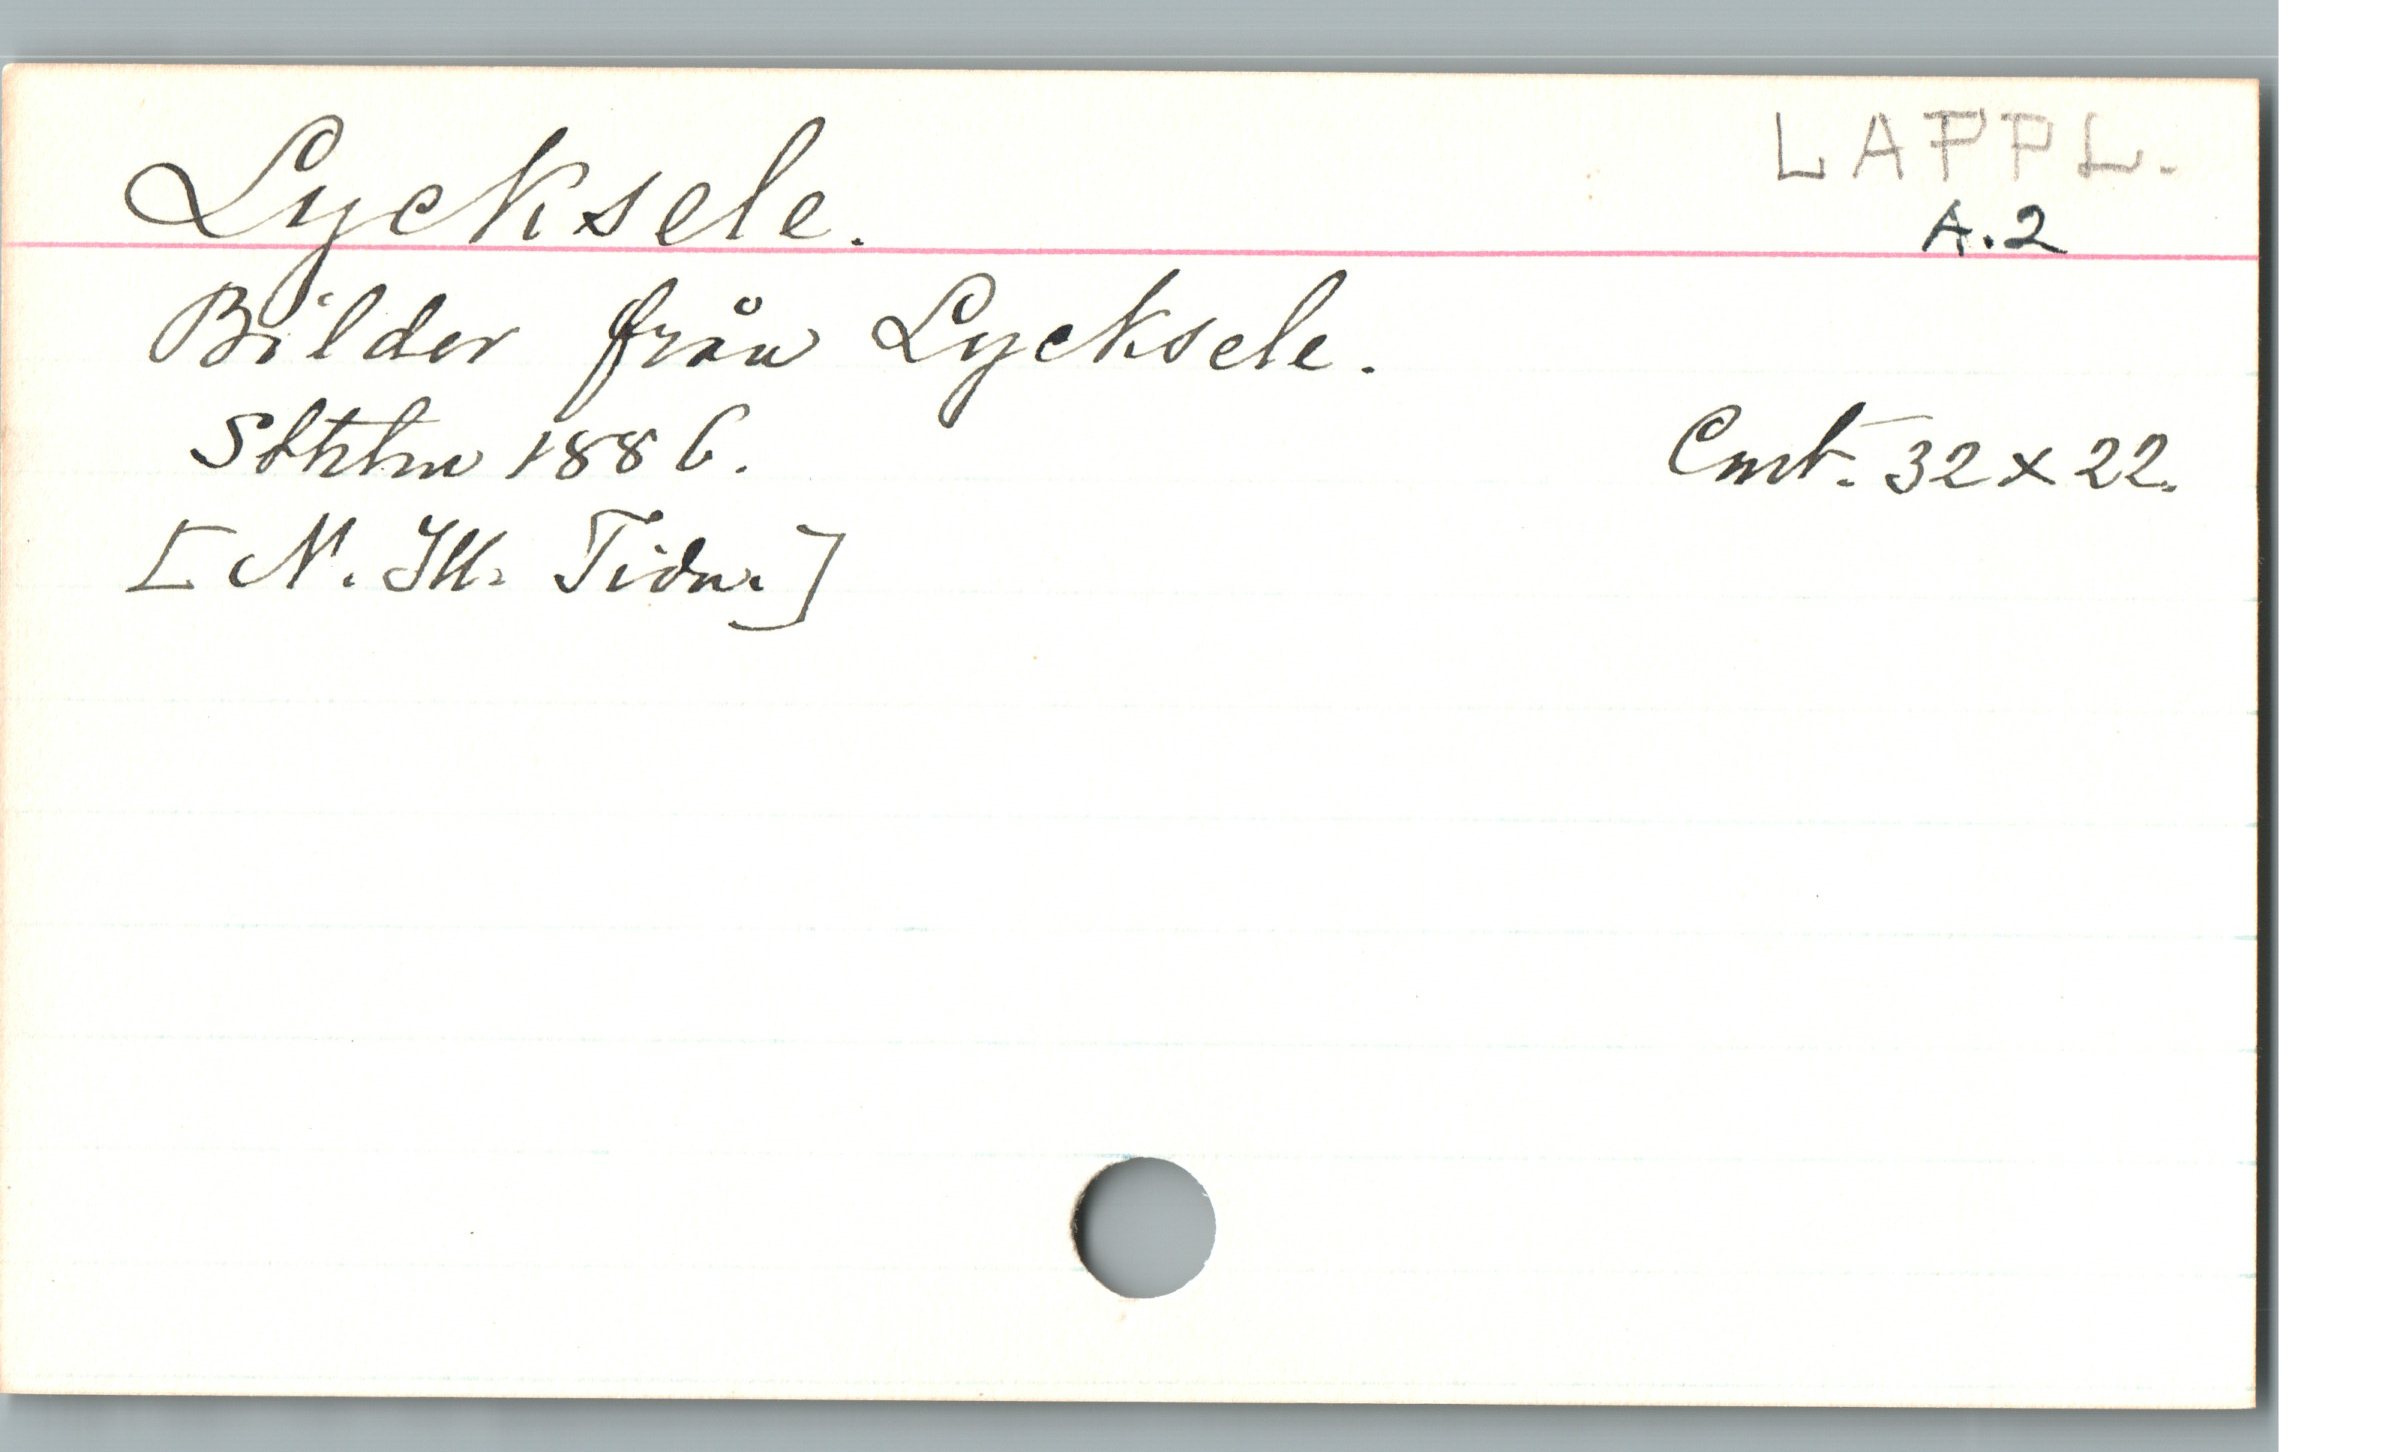 Lycksele.
LAPPL.
A.2
Bilder från Lycksele.
Sthlm 1886. Cmt. 32 x 22.
[N. Ill. Tidn.]